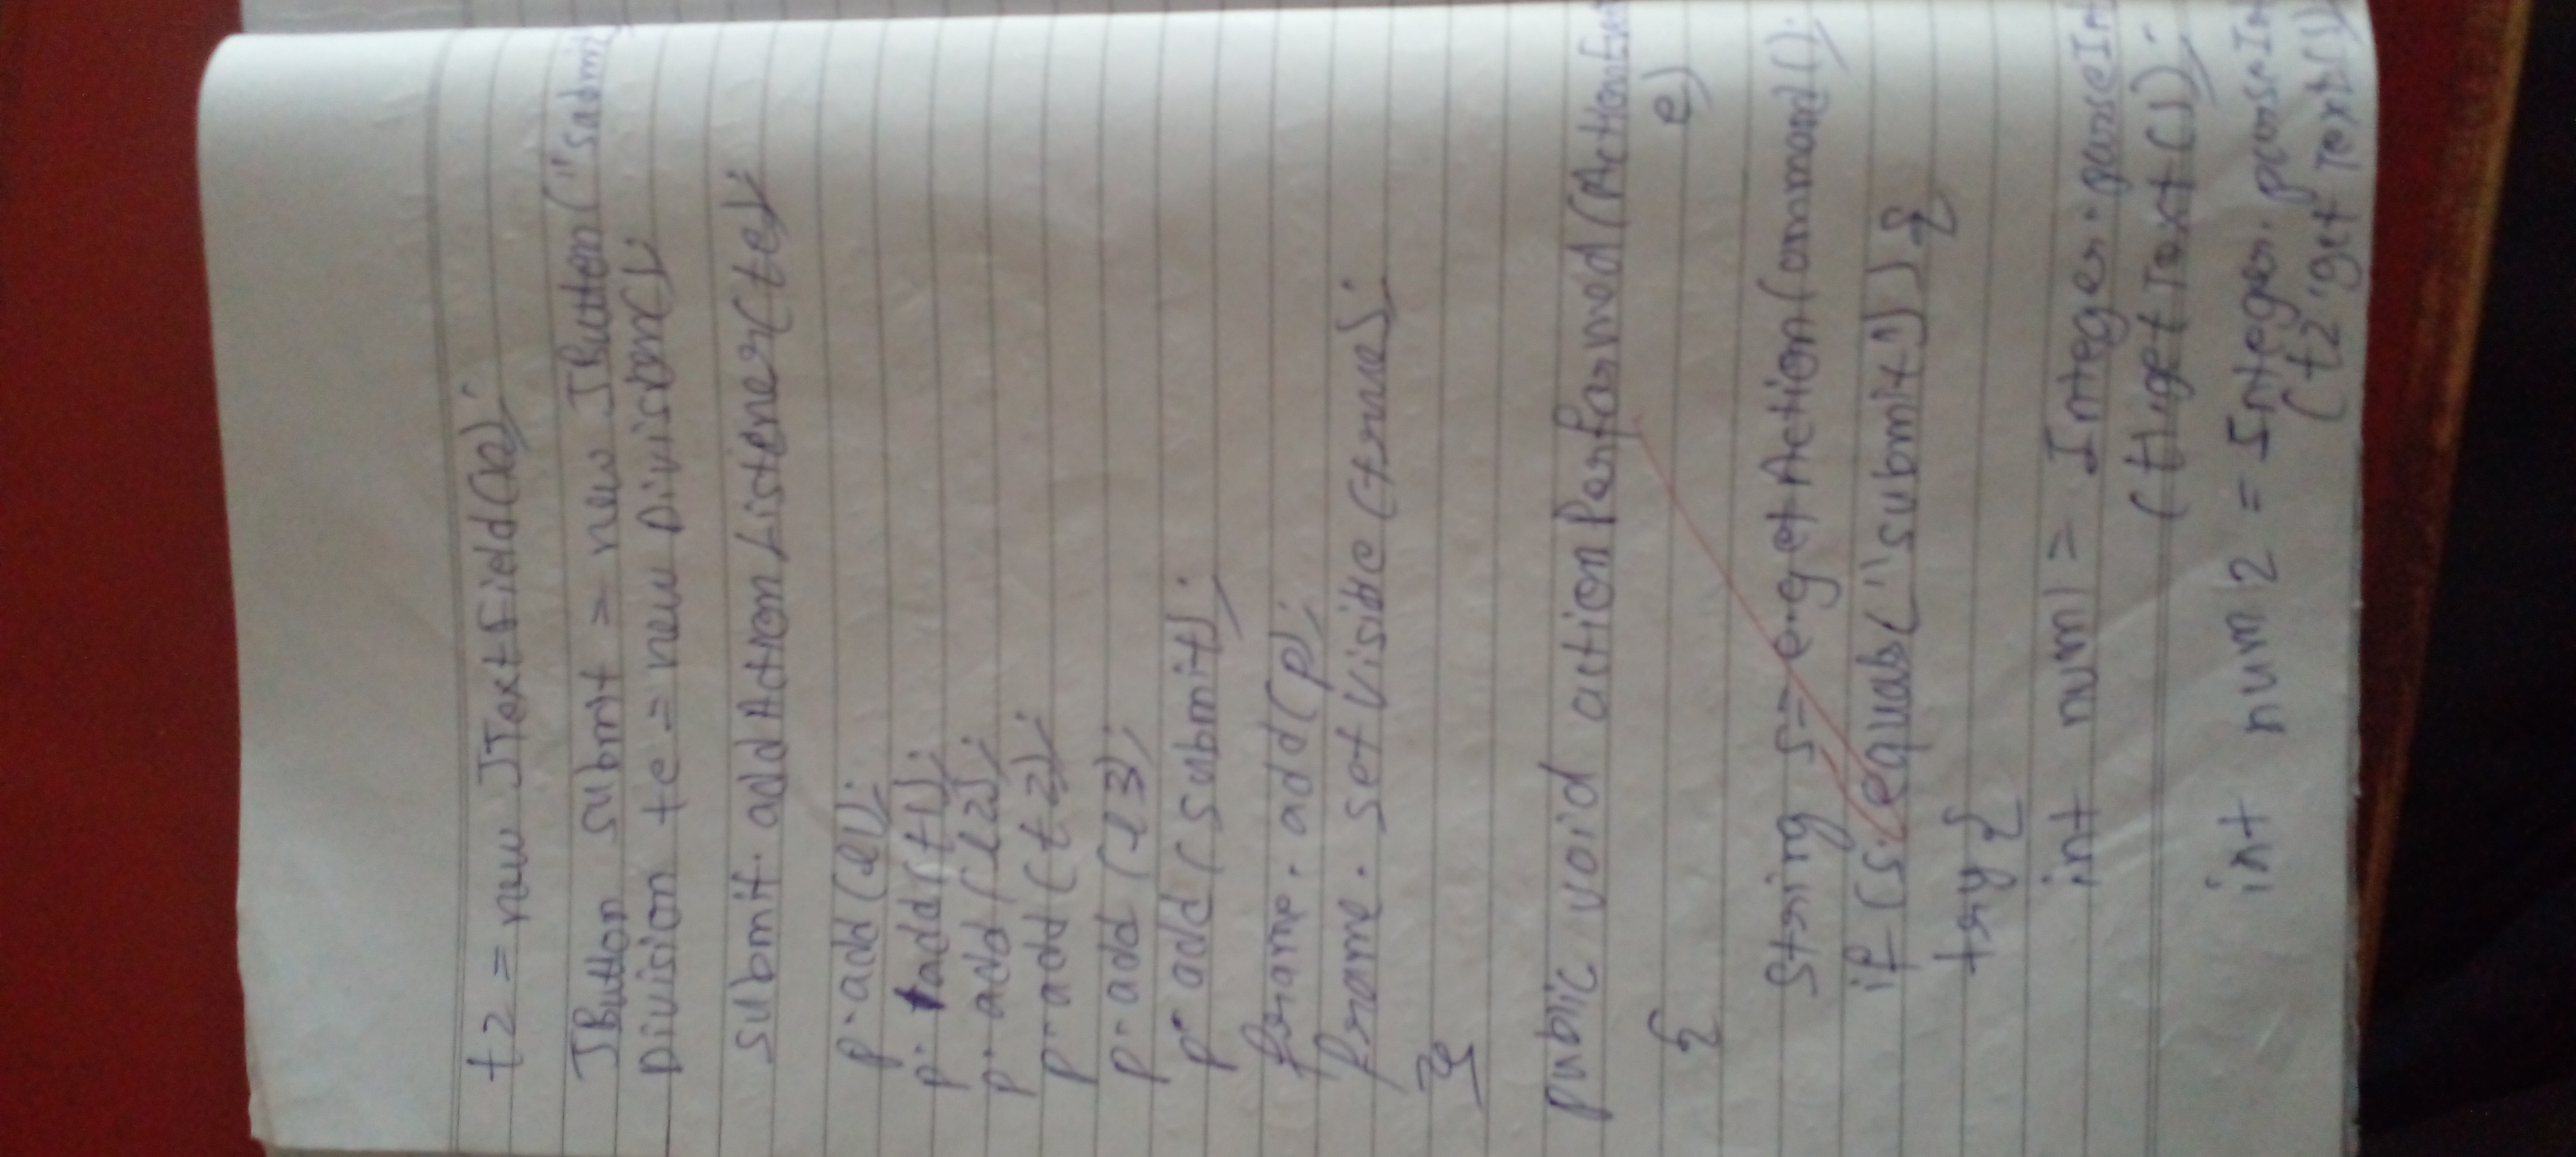 t2 = new JTextField(20);
JButton submit = new JButton("submit
Division te = new Division();
submit.addActionListener(te);
p.add(l1);
p.add(t1);
p.add(l2);
p.add(t2);
p.add(l3);
p.add(submit);
frame.add(p);
frame.setVisible(true);
}
public void actionPerformed(ActionEvent
e)
{
String s = e.getActionCommand();
if (s.equals("submit")) {
try {
int num1 = Integer.parseInt
(t1.getText());
int num2 = Integer.parseInt
(t2.getText());